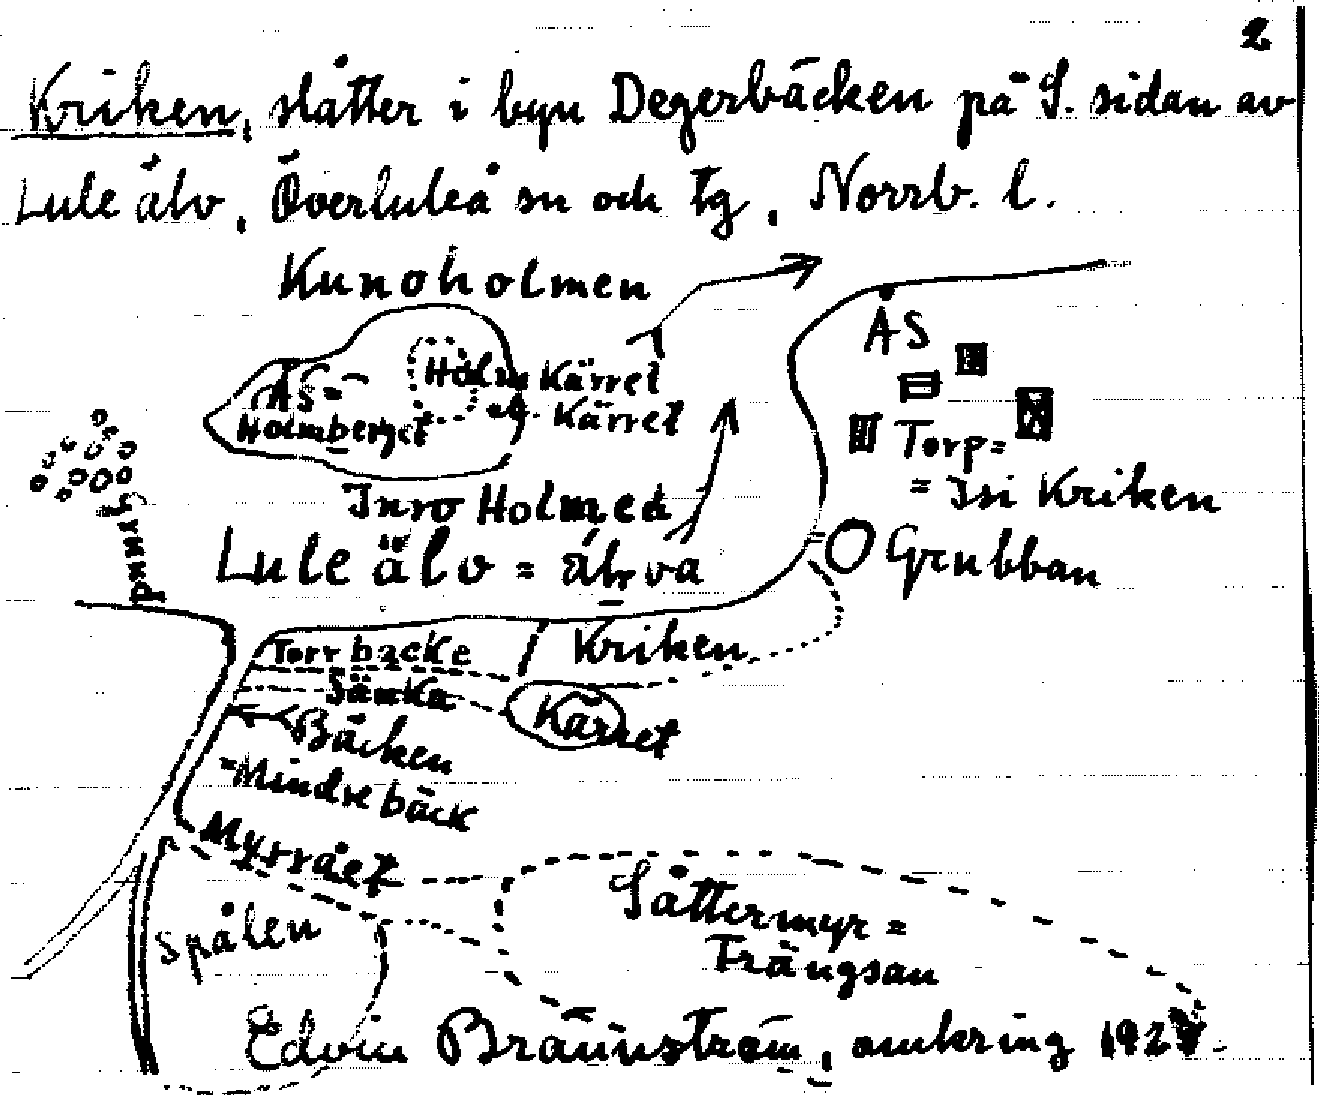 2
Kriken, slåtter i byn Degerbäcken på S. sidan av
Lule älv, Överluleå sn och tg, Norrb. l.
Kunoholmen
ÅS
ÅS=
Holmberget
Holm Kärret
el. Kärret
Torp=
= Isi Kriken
Inro Holmed
Lule älv =
Grubban
Grund
Torrbacke
Kriken
Sänka
Kärret
Bäcken
=Mindre bäck
Myrråët
Såttermyr =
Trängsan
Spålen
Edvin Brännström, omkring 192